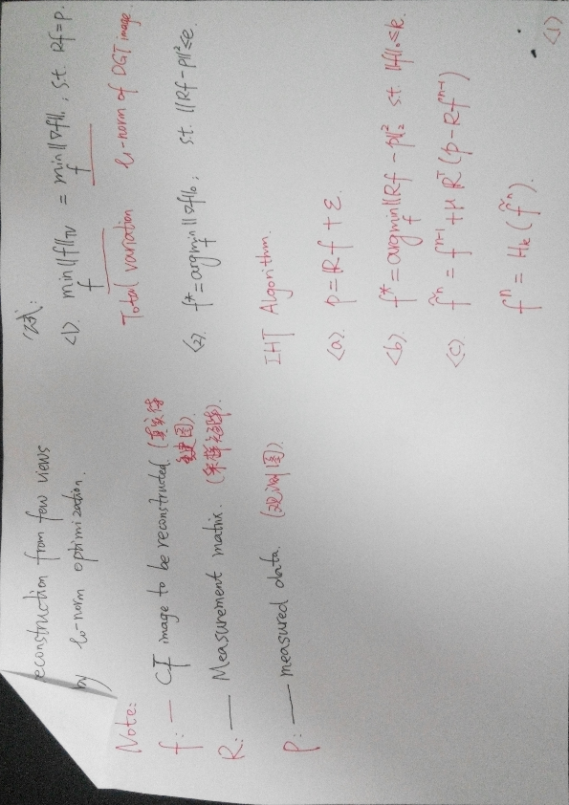 econstruction from few views
by l₀-norm optimization.
Note:
f: — CT image to be reconstructed. (真实待
重建图).
R: — Measurement matrix. (采样矩阵).
P: — measured data. (观测图).
公式:
<1). min‖f‖TV = min‖∇f‖₁, s.t. Rf=p.
f f
Total variation l₁-norm of DGT image.
<2). f* = argmin‖∇f‖₀, s.t. ‖Rf-p‖²≤e.
f
IHT Algorithm.
<a). p=Rf+ε.
<b). f* = argmin‖Rf-p‖₂² s.t. ‖f‖₀≤k.
f
<c). f̃ⁿ = fⁿ⁻¹ + μ Rᵀ(p-Rfⁿ⁻¹)
fⁿ = Hₖ(f̃ⁿ).
<1)